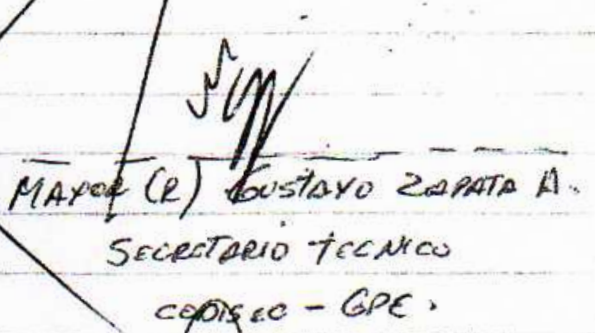 MAYOR (R) GUSTAVO ZAPATA A.
SECRETARIO TECNICO
CODISEC - GPE.